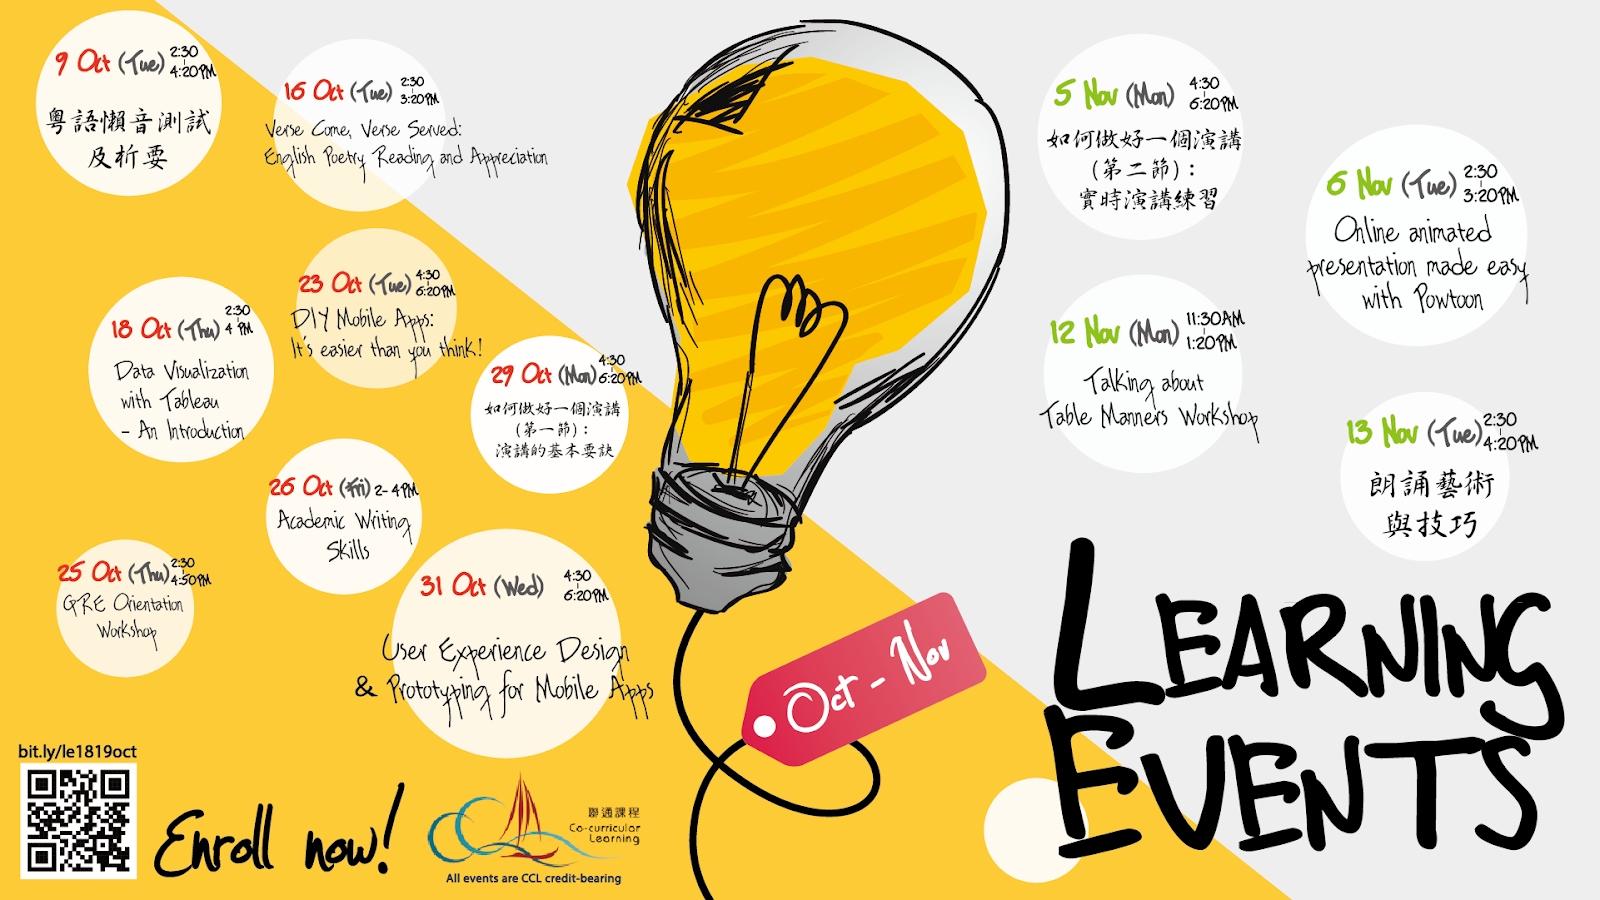 9 Oct (Tue) 2:30
-
4:20PM
粵語懶音測試
及析要
16 Oct (Tue) 2:30
-
3:20PM
Verse Come, Verse Served:
English Poetry Reading and Appreciation
18 Oct (Thu) 2:30
-
4 PM
Data Visualization
with Tableau
- An Introduction
23 Oct (Tue) 4:30
-
6:20PM
DIY Mobile Apps:
It's easier than you think!
29 Oct (Mon) 4:30
-
6:20PM
如何做好一個演講
(第一節):
演講的基本要訣
26 Oct (Fri) 2- 4PM
Academic Writing
Skills
25 Oct (Thu) 2:30
-
4:50PM
GRE Orientation
Workshop
31 Oct (Wed) 4:30
-
6:20PM
User Experience Design
& Prototyping for Mobile Apps
5 Nov (Mon) 4:30
-
6:20PM
如何做好一個演講
(第二節):
實時演講練習
6 Nov (Tue) 2:30
-
3:20PM
Online animated
presentation made easy
with Powtoon
12 Nov (Mon) 11:30AM
-
1:20PM
Talking about
Table Manners Workshop
13 Nov (Tue) 2:30
-
4:20PM
朗誦藝術
與技巧
Oct - Nov
LEARNING
EVENTS
bit.ly/le1819oct
Enroll now!
聯通課程
Co-curricular
Learning
All events are CCL credit-bearing